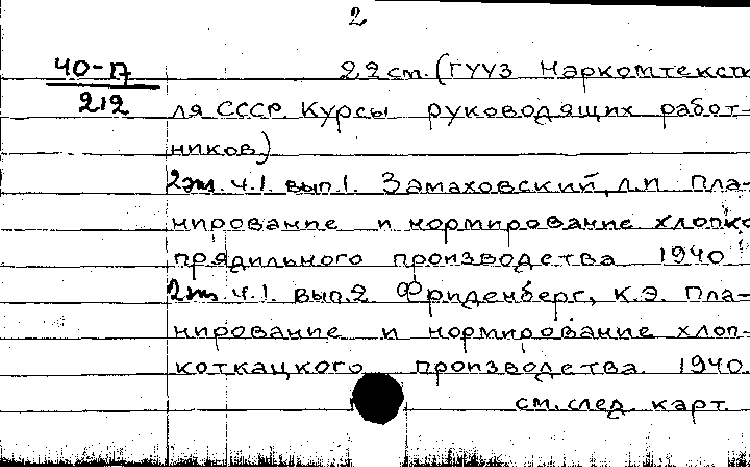 2
40-17
212
22 см. (ГУУЗ Наркомтексти
ля СССР. Курсы руководящих работ-
ников)
2 эт. ч.1. вып.1. Замаховский, Л.П. Пла-
нирование и нормирование хлопко
прядильного производства 1940
2 эт. ч.1. вып.2. Фриденберг, К.Э. Пла-
нирование и нормирование хлоп-
коткацкого производства. 1940.
см. след. карт.